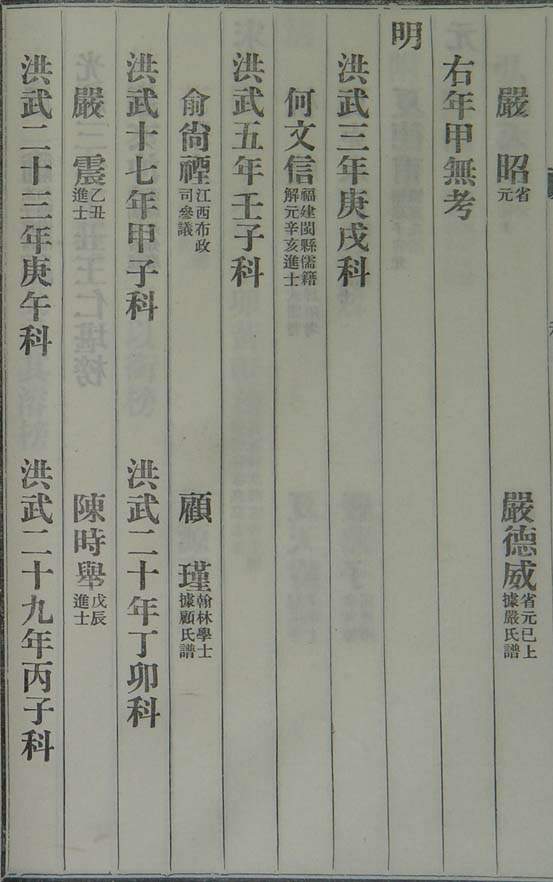 嚴昭省元 嚴德威省元已上據嚴氏譜
右年甲無考
明
洪武三年庚戌科
何文信福建閩縣儒籍解元辛亥進士
洪武五年壬子科
俞尙禋江西布政司參議 顧瑾翰林學士據顧氏譜
洪武十七年甲子科 洪武二十年丁卯科
嚴震乙丑進士 陳時舉戊辰進士
洪武二十三年庚午科 洪武二十九年丙子科